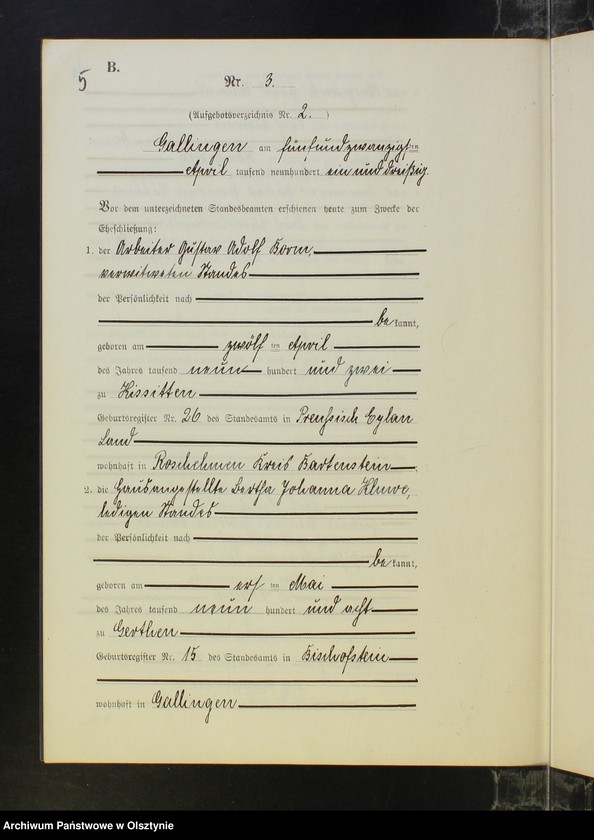 5
B.
Nr. 3.
(Aufgebotsverzeichnis Nr. 2.)
Gallingen am fünfundzwanzigsten
April tausend neunhundert einunddreißig.
Vor dem unterzeichneten Standesbeamten erschienen heute zum Zwecke der
Eheschließung:
1. der Arbeiter Gustav Adolf Born,
verwitweten Standes
der Persönlichkeit nach
be kannt,
geboren am zwölften April
des Jahres tausend neun hundert und zwei
zu Kissitten
Geburtsregister Nr. 26 des Standesamts in Preußisch Eylau
Land
wohnhaft in Roschehnen Kreis Bartenstein.
2. die Hausangestellte Bertha Johanna Kluwe,
ledigen Standes
der Persönlichkeit nach
be kannt,
geboren am ersten Mai
des Jahres tausend neun hundert und acht
zu Gerthen
Geburtsregister Nr. 15 des Standesamts in Bischofstein
wohnhaft in Gallingen
Archiwum Państwowe w Olsztynie